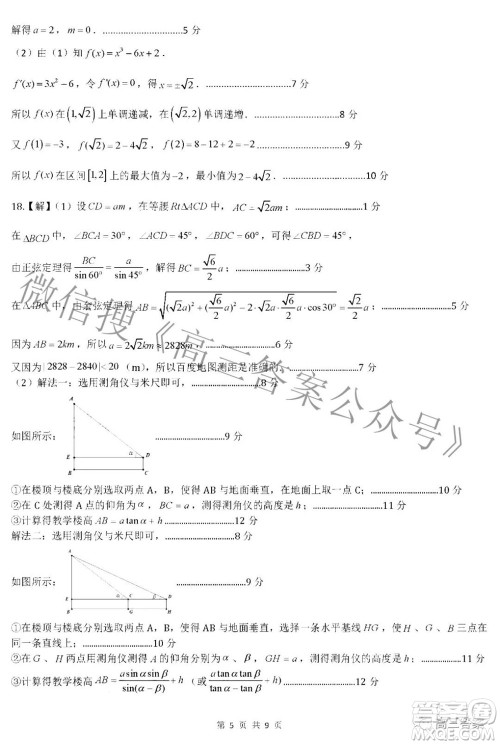 解得 a = 2，m = 0．..............................5 分
（2）由（1）知 f(x) = x³ − 6x + 2．
f′(x) = 3x² − 6，令 f′(x) = 0，得 x = ±√2．..............................7 分
所以 f(x) 在 (1,√2) 上单调递减，在 (√2,2) 单调递增．..............................8 分
又 f(1) = −3，f(√2) = 2 − 4√2，f(2) = 8 − 12 + 2 = −2．..............................9 分
所以 f(x) 在区间 [1,2] 上的最大值为 −2，最小值为 2 − 4√2．..............................10 分
18.【解】（1）设 CD = am，在等腰 Rt△ACD 中，AC = √2am；..............................1 分
在 △BCD 中，∠BCA = 30°，∠BCD = 75°，∠CDB = 60°，可得 ∠CBD = 45°，
由正弦定理得 BC/sin 60° = a/sin 45°，解得 BC = (√6/2)a；..............................3 分
在 △ABC 中，由余弦定理得 AB = √((√2a)² + ((√6/2)a)² − 2·√2a·(√6/2)a·cos30°) = (√2/2)a，..............................5 分
因为 AB = √2km，所以 a = 2√2km ≈ 2828m，..............................6 分
又因为 |2828 − 2840| < 20（m），所以百度地图测距是准确的．..............................7 分
（2）解法一：选用测角仪与米尺即可，..............................8 分
A
E α D
B C
如图所示：..............................9 分
①在楼顶与楼底分别选取两点 A，B，使得 AB 与地面垂直，..............................10 分
②在 C 处测得 A 点的仰角为 α，BC = a，测得测角仪的高度是 h；..............................11 分
③计算得教学楼高 AB = a tan α + h．..............................12 分
解法二：选用测角仪与米尺即可，
A
如图所示：..............................9 分
①在楼顶与楼底分别选取两点 A，B，使得 AB 与地面垂直；选择一条水平基线 HG，使得 H，G，B 在
同一条直线上；..............................10 分
②在 G、H 两点用测角仪测得 A 的仰角分别为 α、β，GH = a，测得测角仪的高度是 h；..............................11 分
③计算得教学楼高 AB = a sin α sin β/sin(α−β) + h（或 a tan α tan β
第 5 页 共 9 页
微信搜《高三答案公众号》
高三答案